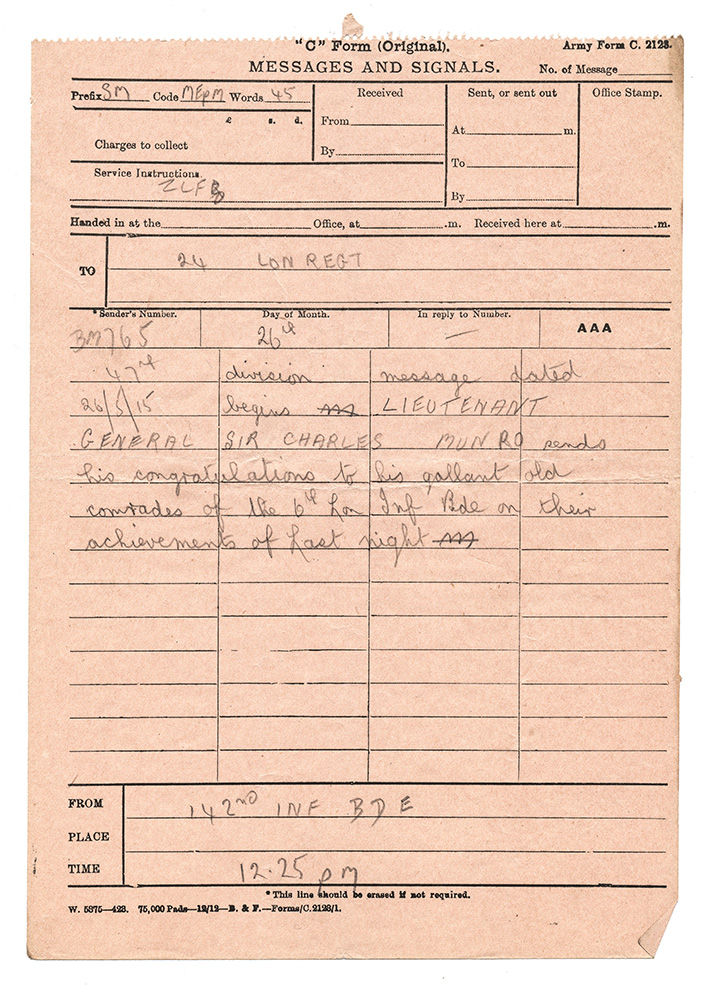 "C" Form (Original).
Army Form C. 2123.
MESSAGES AND SIGNALS.
No. of Message
Prefix SM Code MEpM Words 45
£ s. d.
Charges to collect
Service Instructions.
ZLFB
Received
From
By
Sent, or sent out
At m.
To
By
Office Stamp.
Handed in at the Office, at .m. Received here at .m.
TO 24 LON REGT
*Sender's Number. Day of Month. In reply to Number. AAA
BM765 26th —
47th division message dated
26/5/15 begins AAA LIEUTENANT
GENERAL SIR CHARLES MUNRO sends
his congratulations to his gallant old
comrades of the 6th Lon Inf Bde on their
achievements of Last night AAA
FROM 142ND INF BDE
PLACE
TIME 12.25 pM
*This line should be erased if not required.
W. 5375—423. 75,000 Pads—12/12—B. & F.—Forms/C.2123/1.